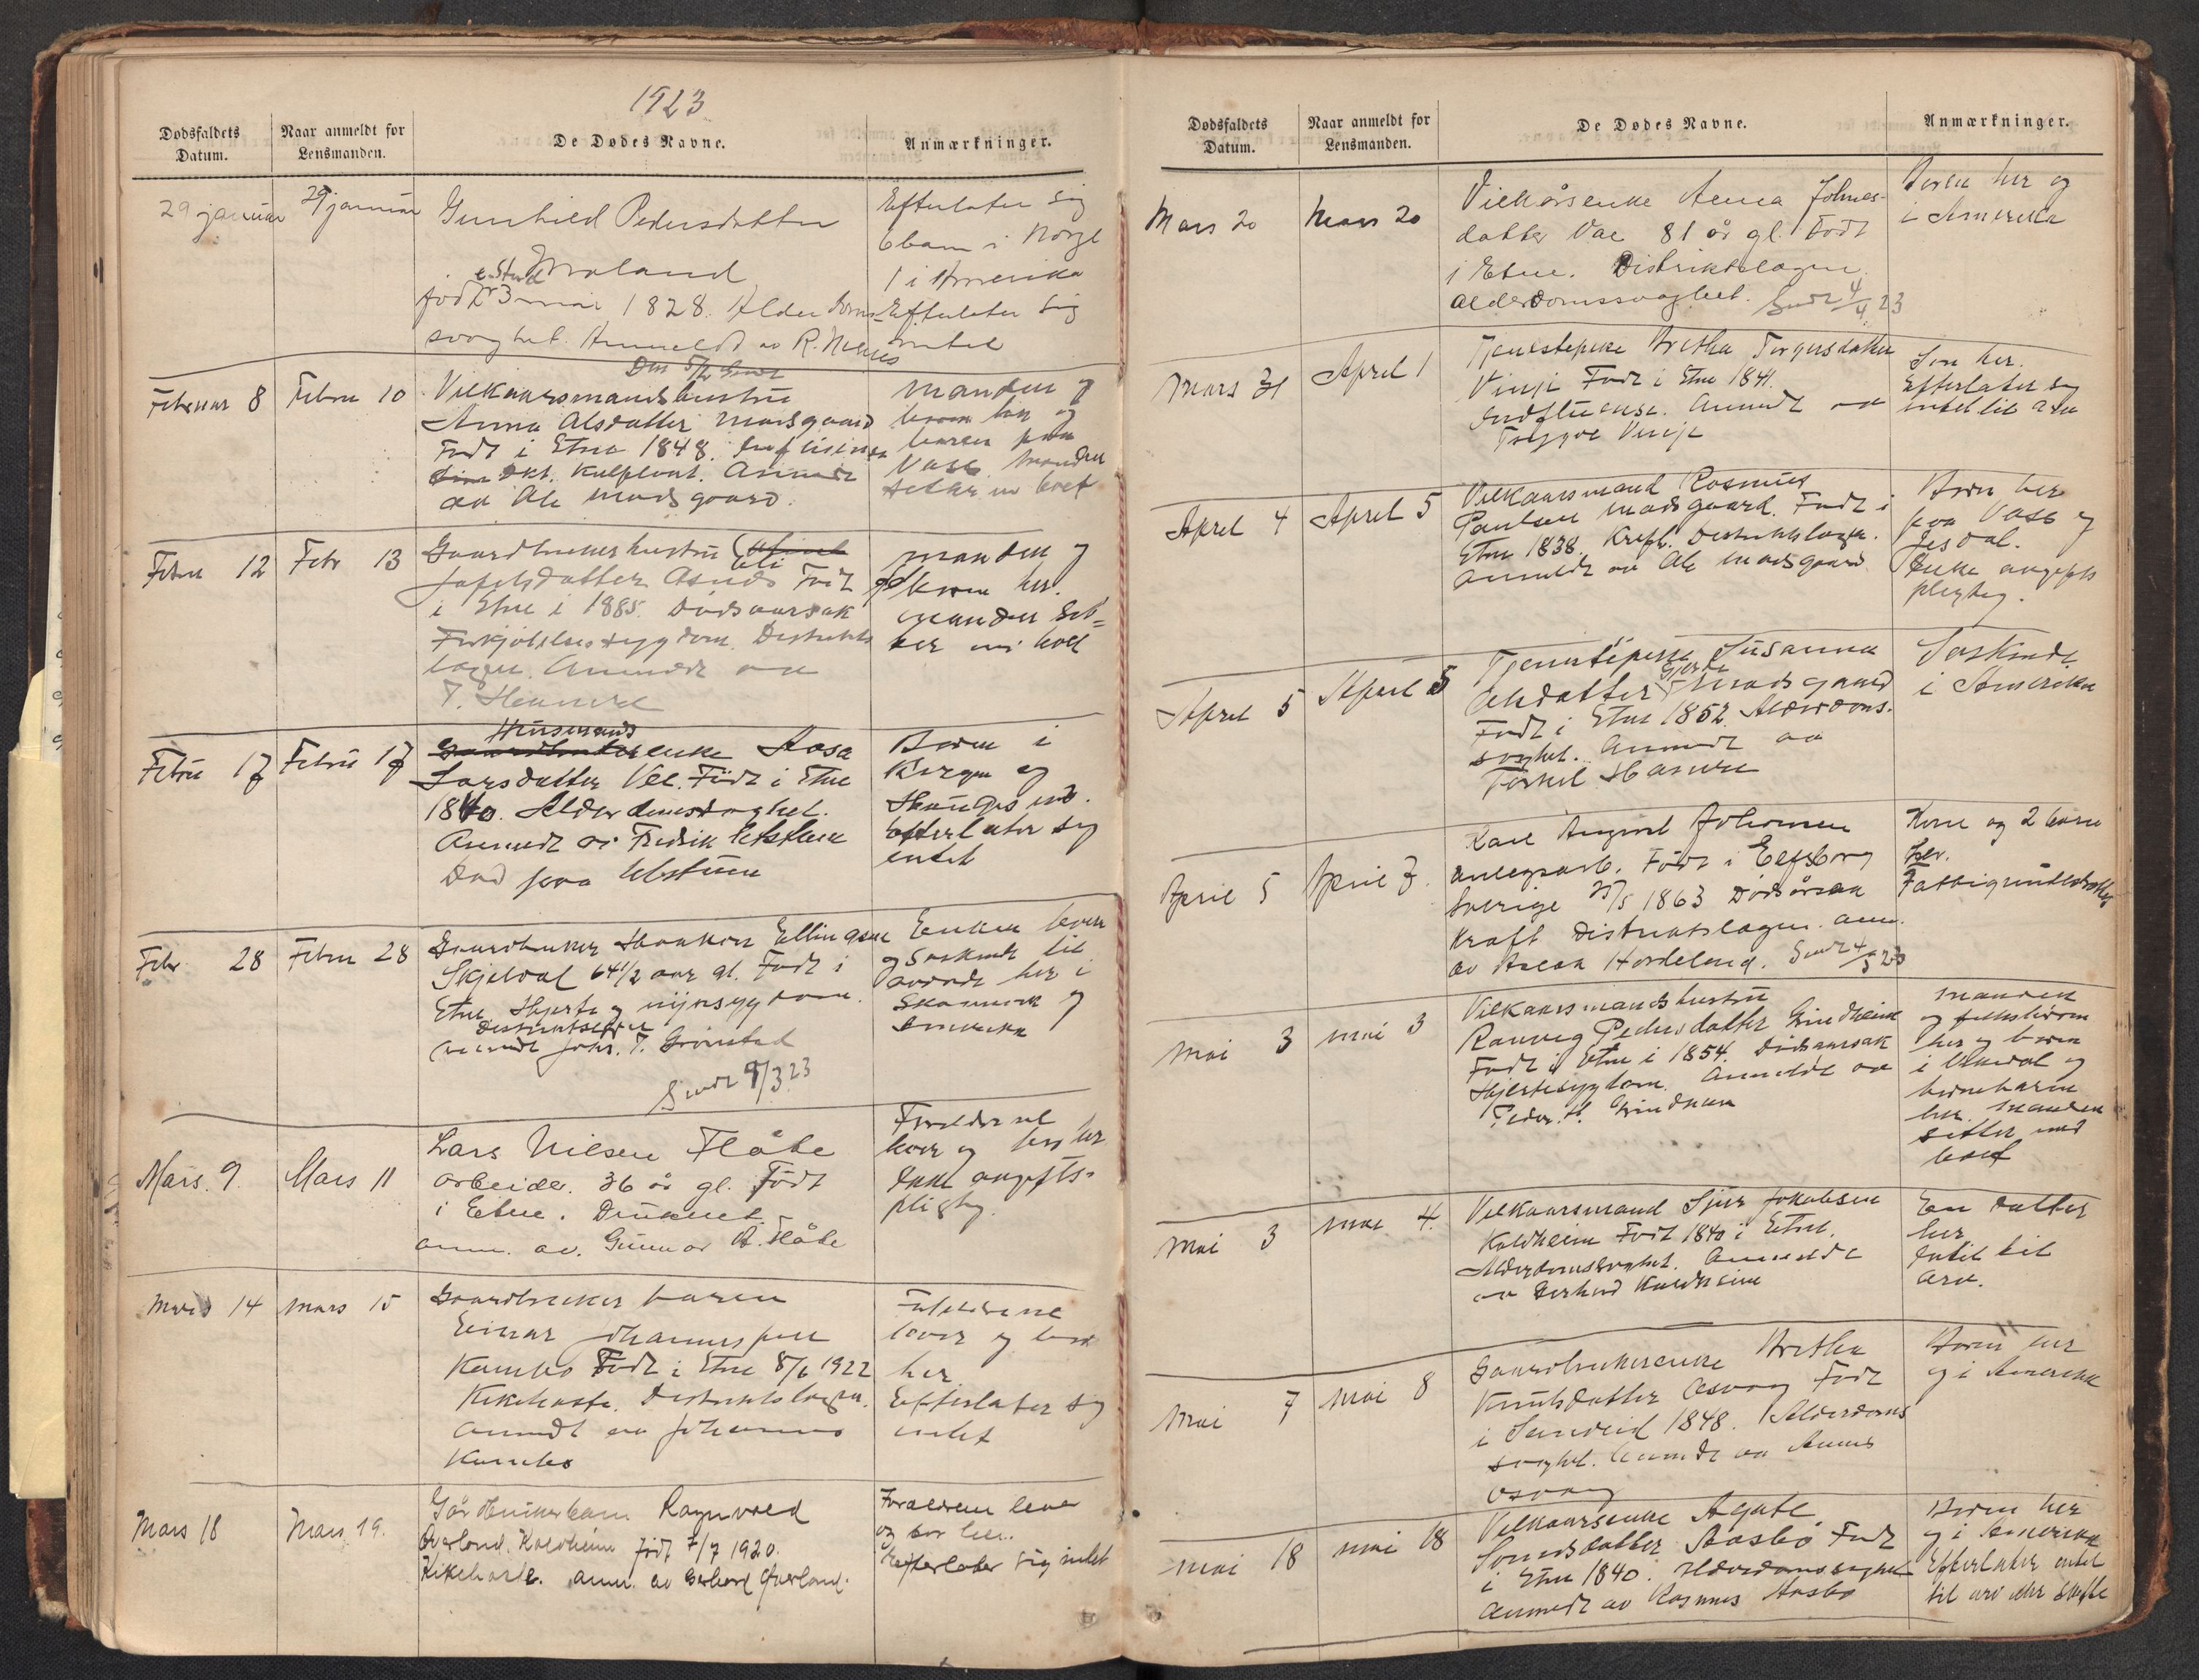 1923
Dødsfaldets Datum.
Naar anmeldt for Lensmanden.
De Dødes Navne.
Anmærkninger.
29 januar
29 januar
Gunhild Pedersdatter
Moland
født 3 mai 1828. Alderdoms-
svaghet. Anmeldt av R.
Efterlater sig
6 barn i Norge
1 i Amerika
Efterlater sig
intet
Februar 8
Febru 10
Vilkaarsmandshustru
Anna Olsdatter Madsgaard
Født i Etne 1848.
Dkt. Anmeldt
av Ole Madsgaard.
manden og
og
paa
Voss manden
Febru 12
Febr 13
Gaardbrukerhustru
Eli
Født
i Etne i 1885. Dødsaarsak
sygdom. Distrikts
lægen. Anmeldt av
T.
manden og
her.
manden sit-
ter
Febru 17
Febru 17
Husmands
enke Aasa
Larsdatter Født i Etne
1840. Alderdomssvaghet.
Anmeldt av Fredrik
Død paa
Børn i
Bergen og
Efterlater sig
intet
Febr 28
Febru 28
Gaardbruker Haakon Ellingsen
Skjelval 64 1/2 aar gl. Født i
Etne. Hjerte og nyresygdom.
Distriktslægen
Anmeldt Johs. T. Grønstad
Sendt 9/3 23
Enken lever
og Søskende til
avdøde her i
og
Amerika
Mars. 9
Mars 11
Lars Nilsen Flåte
arbeider. 36 år gl. Født
i Etne. Druknet.
anm. av. Gunnar A. Flåte
Forældrene
lever og bor her
Ikke avgifts-
pligtig.
Mars 14
Mars 15
Gaardbruker barn
Einar Johannessen
Kambo Født i Etne 8/6 1922
Kikhoste. Distriktslægen.
Anmeldt av Johannes
Kambo
Forældrene
lever og bor
her
Efterlater sig
intet
Mars 18
Mars 19.
Gårdbrukerbarn Ragnvald
Øverland. Kaldheim født 7/7 1920.
Kikhoste. Anm. av Gerhard Øverland.
Forældrene lever
og bor her.
Efterlater sig intet
Dødsfaldets Datum.
Naar anmeldt for Lensmanden.
De Dødes Navne.
Anmærkninger.
Mars 20
Mars 20
Vilkårsenke Anna Johnes-
datter Vae 81 år gl. Født
i Etne. Distriktslægen.
Alderdomssvaghet. Sendt 4/4 23
Børn her og
i Amerika
Mars 31
April 1
Tjenestepike Bretha Torgersdatter
Vinje Født i Etne 1841.
Indfluense. Anmeldt av
Trygve Vinje
Søn her.
Efterlater sig
intet til arv
April 4
April 5
Vilkaarsmand Rasmus
Paulsen Madsgaard. Født i
Etne 1838. Kræft. Distriktslægen.
Anmeldt av Ole Madsgaard.
Børn her
paa Voss og
Jesdal.
Ikke avgifts
pligtig.
April 5
April 5
Tjenestepike Susanna
Gjerde
Olsdatter Madsgaard
Født i Etne 1852. Alderdoms-
svaghet. Anmeldt av
Torkel
Søskende
i Amerika
April 5
April 7.
Karl August Johansen
anlegsarb. Født i Elfsborg
Sverige 25/5 1863 Dødsårsak
Kræft Distriktslægen. anm.
av Aslak Hordeland. Sendt 4/5 23
Kone og 2 barn
her.
Fattigunderstøttet
Mai 3
mai 3
Vilkaarsmandshustru
Ranveig Pedersdatter Grindheim
Født i Etne i 1854. Dødsaarsak
Hjertesygdom. Anmeldt av
Peder. H. Grindheim
manden
og
her og børn
i Ølensdal og
barnebarn
her. Manden
sitter med
boet
Mai 3
mai 4.
Vilkaarsmand Sjur Jakobsen
Kaldheim Født 1840 i Etne.
Alderdomssvaghet. Anmeldt
av Gerhard Kaldheim
En datter
her
Intet til
arv.
Mai 7
mai 8
Gaardbrukerenke Bretha
Knutsdatter Osvog Født
i Sandeid 1848. Alderdoms
svaghet. Anmeldt av Anna
Osvog
Børn her
og i Amerika
mai 18
mai 18
Vilkaarsenke Agate
Aasbø Født
i Etne 1840. Alderdomssvaghet
Anmeldt av Rasmus Aasbø
Børn her
og i Amerika
Efterlater intet
til arv eller skifte